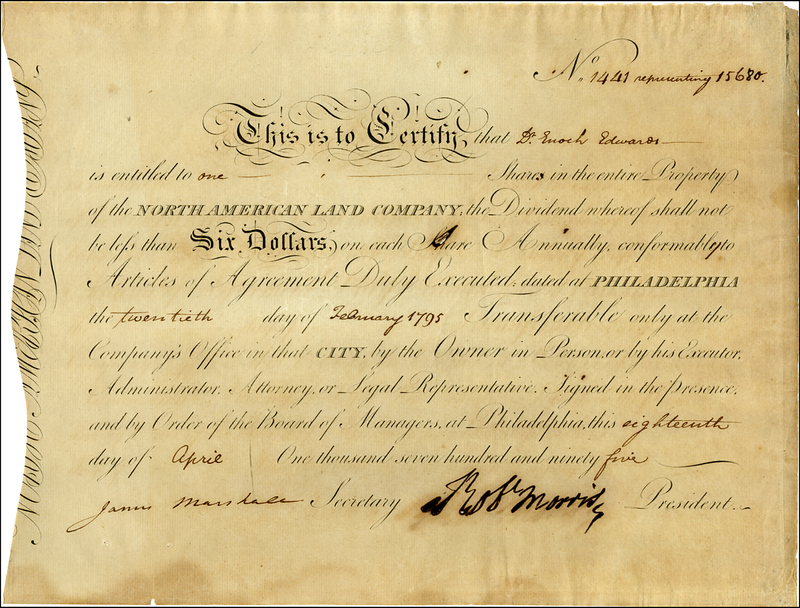 No. 1441 representing 15680.
This is to Certify, that Dr. Enoch Edwards
is entitled to one Share in the entire Property
of the NORTH AMERICAN LAND COMPANY, the Dividend whereof shall not
be less than Six Dollars, on each Share Annually, conformably to
Articles of Agreement Duly Executed; dated at PHILADELPHIA
the twentieth day of February 1795 Transferable only at the
Company's Office in that CITY, by the Owner in Person, or by his Executor,
Administrator, Attorney, or Legal Representative. Signed in the presence,
and by Order of the Board of Managers, at Philadelphia, this eighteenth
day of April One thousand seven hundred and ninety five
James Marshall Secretary Robt Morris President.